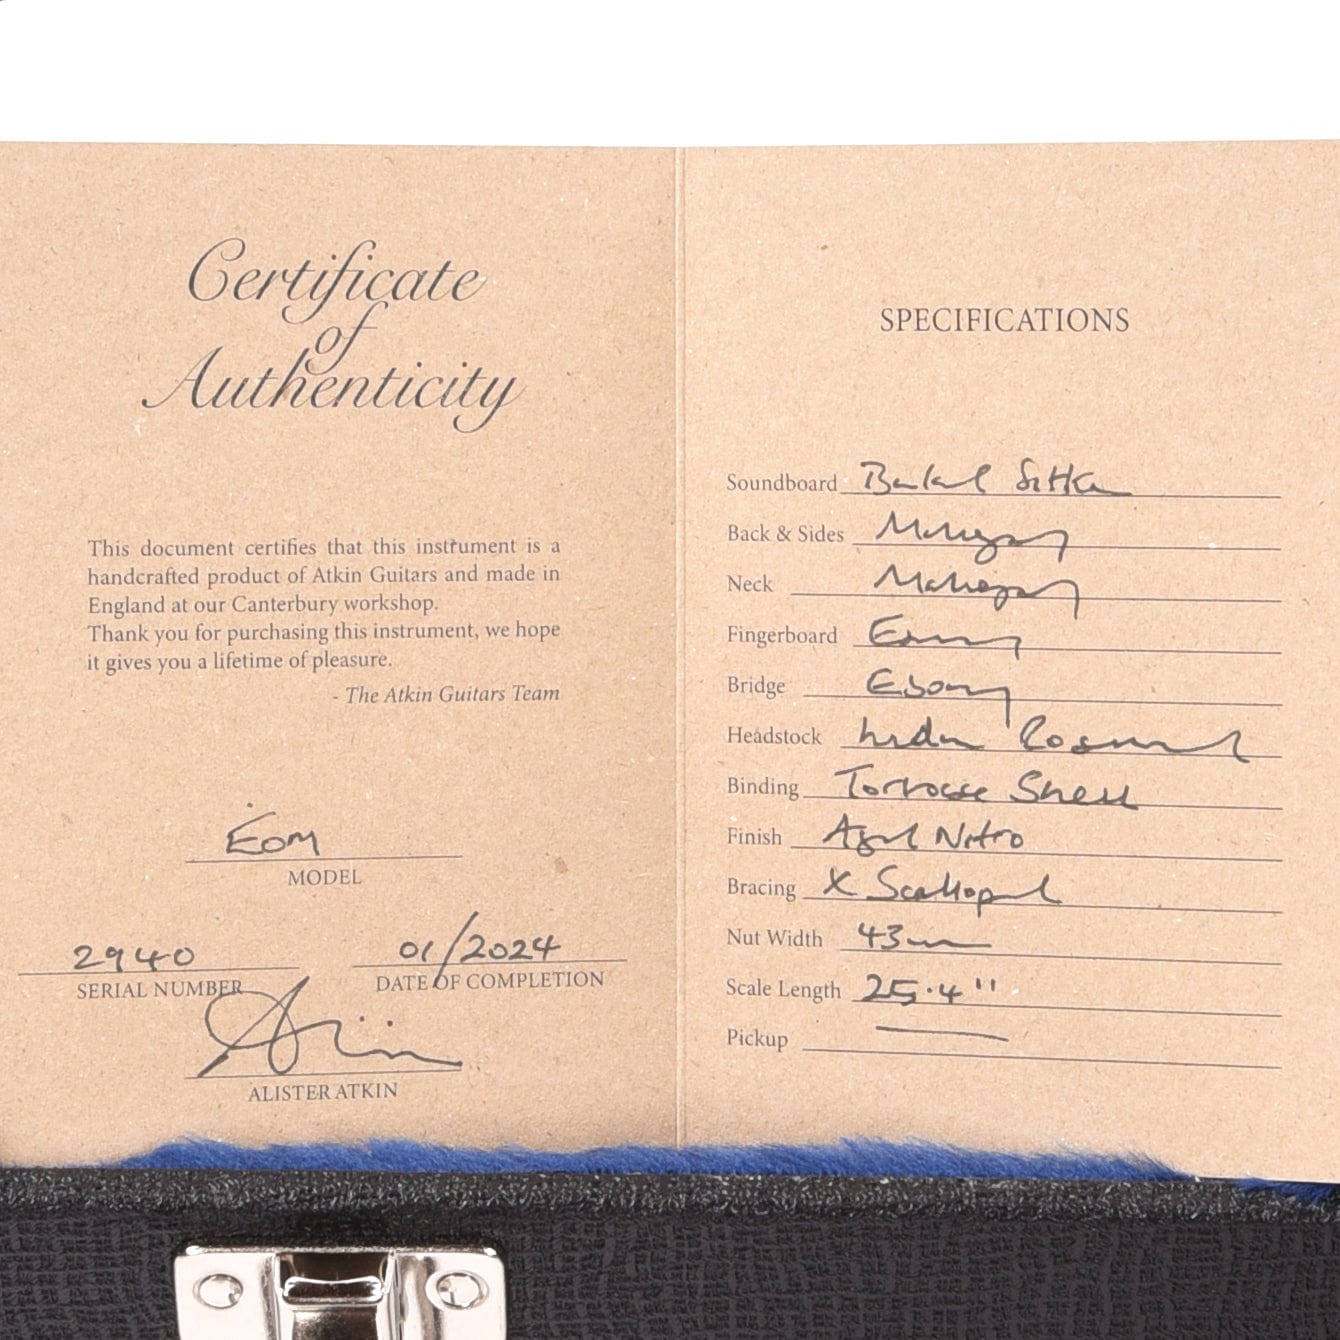 Certificate
of
Authenticity
This document certifies that this instrument is a
handcrafted product of Atkin Guitars and made in
England at our Canterbury workshop.
Thank you for purchasing this instrument, we hope
it gives you a lifetime of pleasure.
- The Atkin Guitars Team
EOM
MODEL
2940
SERIAL NUMBER
01/2024
DATE OF COMPLETION
Atkin
ALISTER ATKIN
SPECIFICATIONS
Soundboard Baked Sitka
Back & Sides Mahogany
Neck Mahogany
Fingerboard Ebony
Bridge Ebony
Headstock Indian Rosewood
Binding Tortoise Shell
Finish Aged Nitro
Bracing X Scalloped
Nut Width 43mm
Scale Length 25.4"
Pickup —